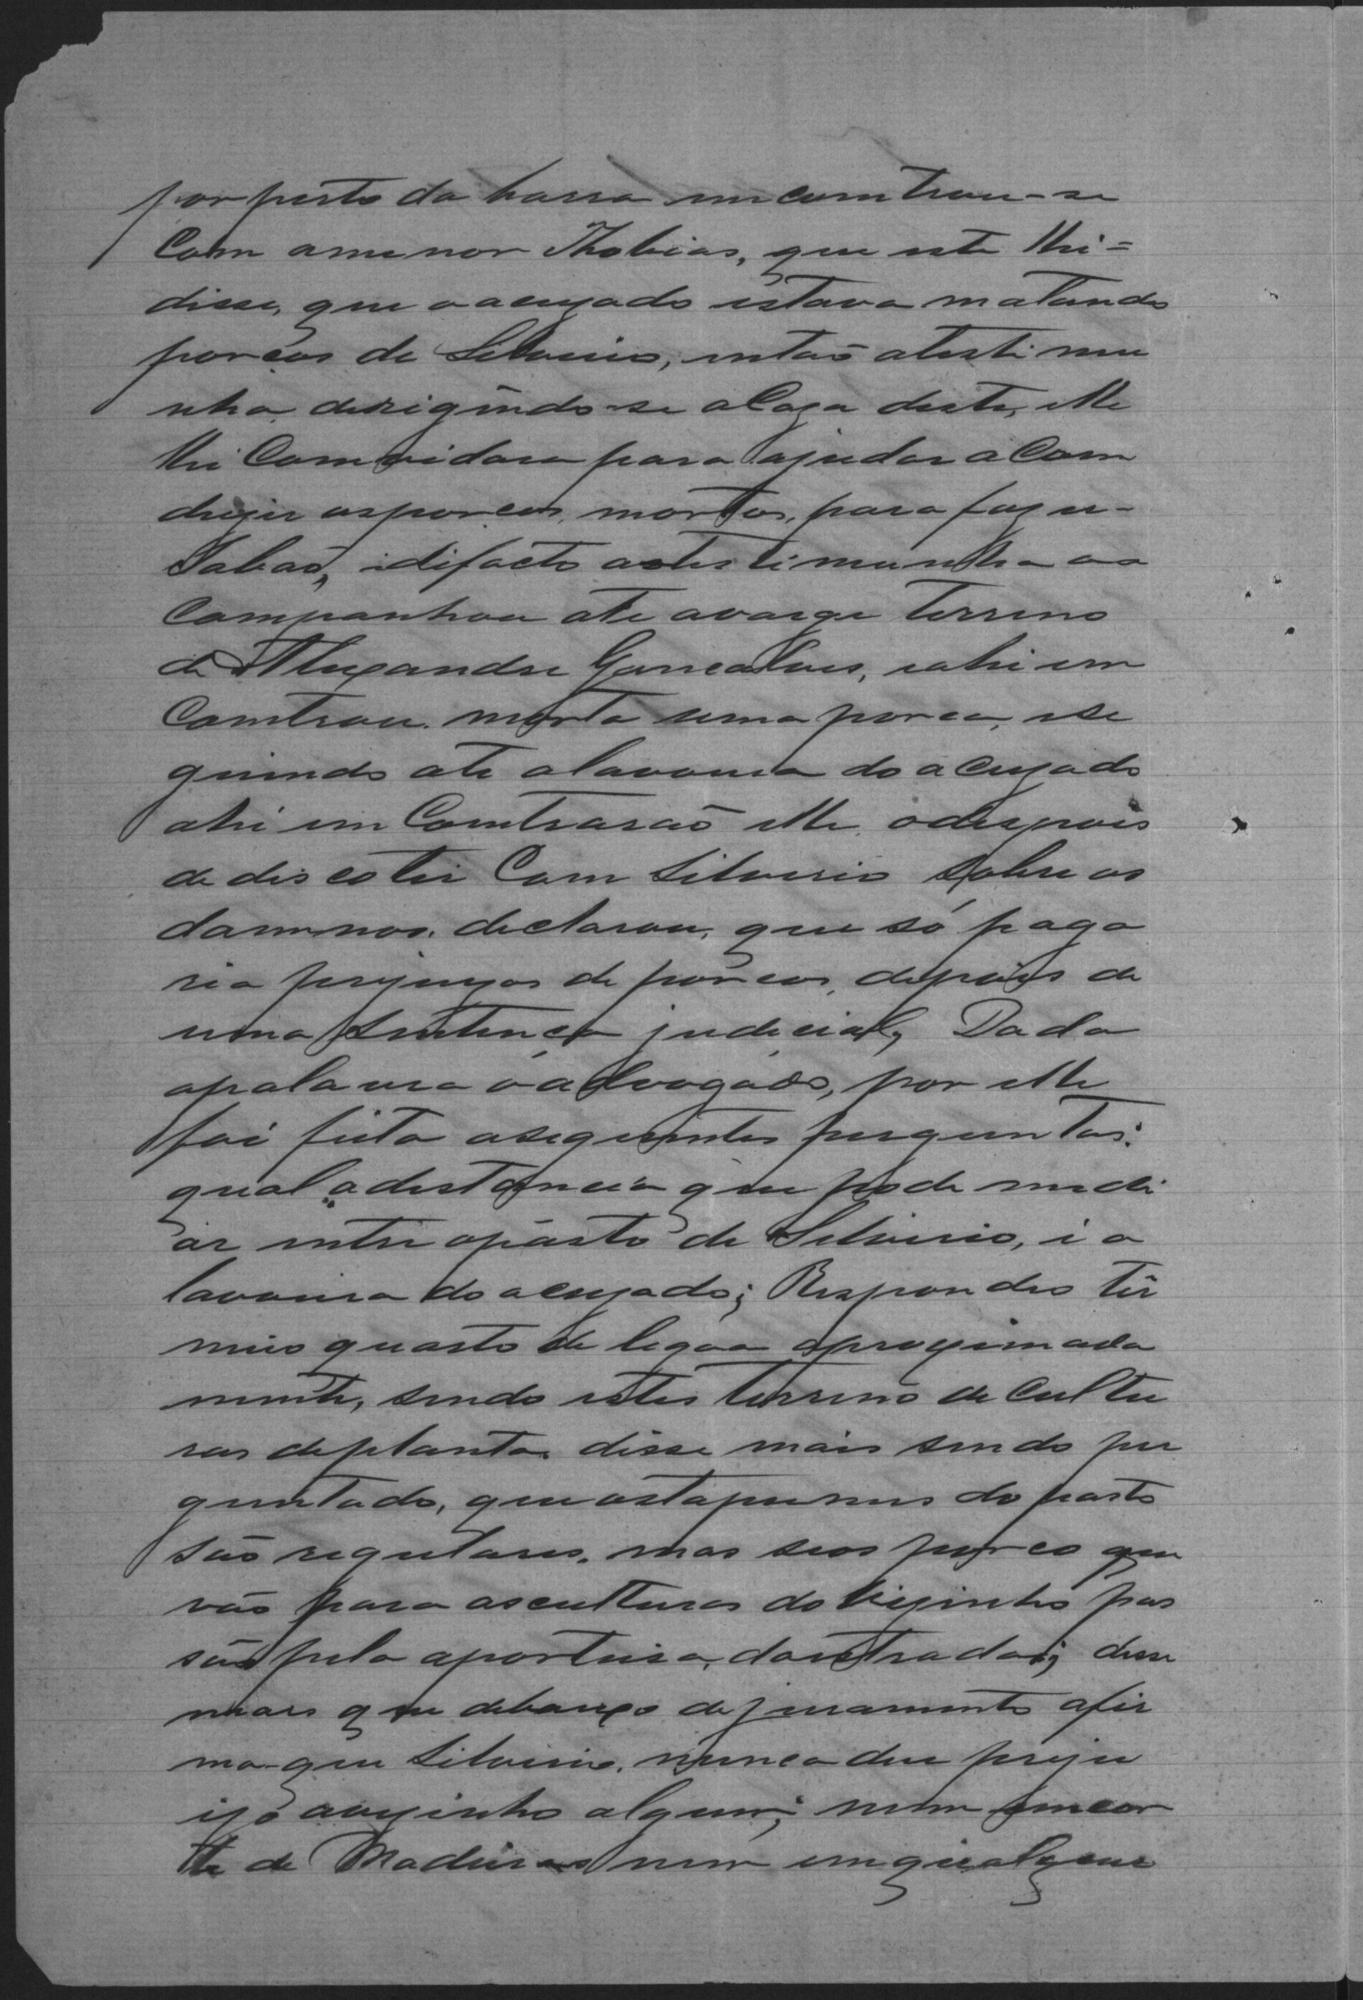 por perto da barra emcomtrou-se
Com amenor Thobias, que este lhi=
disse, que oacuzado estava matando
porcos de Silverio, então atesti mu
nha derigindo-se aCaza deste, elle
lhi Comvidara para ajudar aCom
duzir osporcos mortos, para fazer-
Sabaõ, idifacto atestimunha oa
Companhou ate avarge terreno
de Alexandre Goncalves, eahi em
Comtrou morta uma porca, ese
guindo ate alavoura do acuzado
ahi em Comtraraõ elle, edespois
de discotir Com Silverio sobre os
damnos, declarou, que só paga
ria prejuizos de porcos, depois de
uma Sentenca judicial, Dada
apalavra oadvogado, por elle
foi feita aseguintes perguntas:
qual adestancia que pode medi
ar entre opasto de Silverio, i a
lavoura do acuzado; Respondeo têr
meio quarto de legoa aproximada
mente, sendo estes terreno de Cultu
ras deplanta. disse mais sendo per
guntado, que ostapumes do pasto
são regulares, mas seos porco que
vão para asculturas do Vizinho pas
são pela aporteira, daestrada; disse
mais que debaixo de juramento afir
ma-que Silverio, nunca deu preju
izo avizinho algum; nem emcor
te de Madeiras nem emqualquer